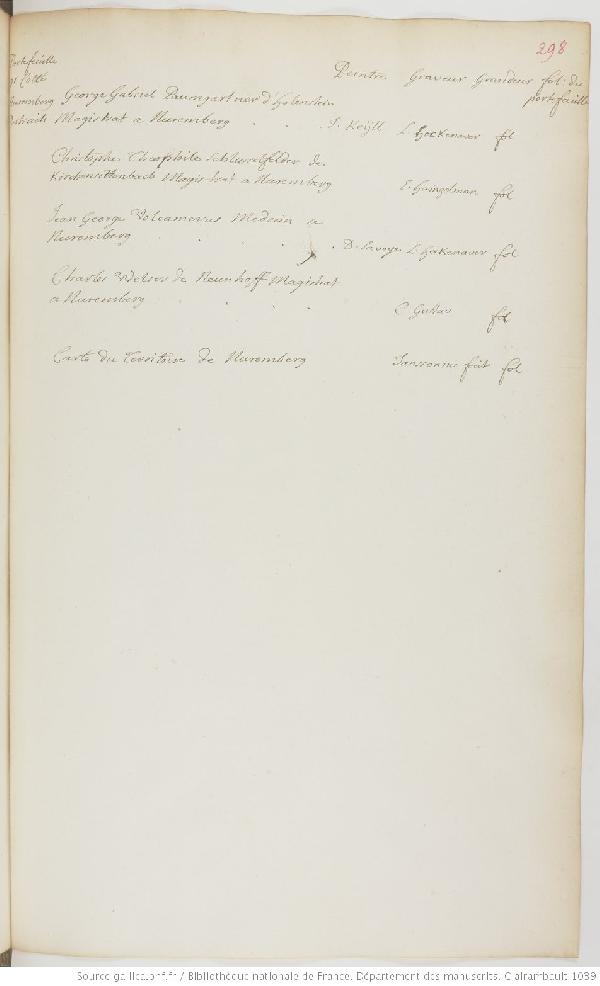 298
Portefeuille
Peintre Graveur Grandeur fol. du
portefeuille
Nuremberg George Gabriel Paumgartner d'Holenstein
Portraits Magistrat a Nuremberg . . . J. Keÿll L Heckenaver fol
Christophe Theophile Schluwelfelder de
Kirchensittenbach Magistrat a Nuremberg E. Hainzelman fol
Jean George Volcamerus Medecin a
Nuremberg . . . . D. Savoye L. Hekenaver fol
Charles Welser de Neunhoff Magistrat
a Nuremberg . . . fol
Carte du Territoire de Nuremberg Janssonius fecit fol
Source gallica.bnf.fr / Bibliothèque nationale de France. Département des manuscrits. Clairambault 1039